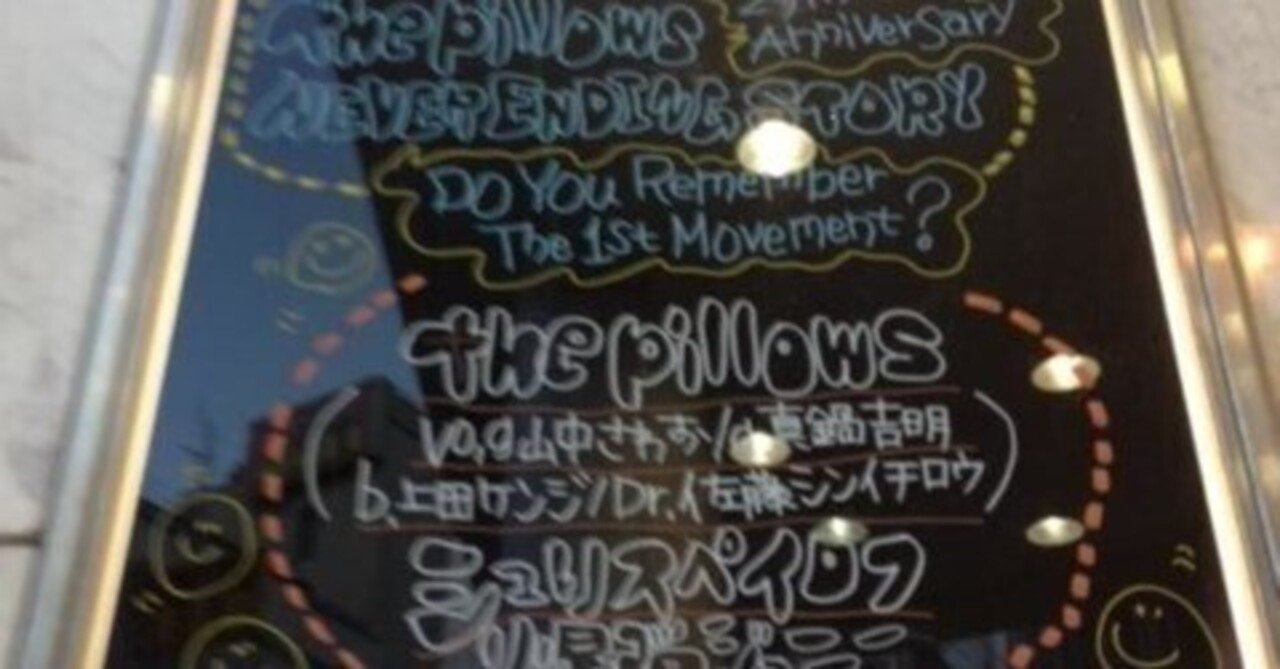 the pillows
Anniversary
NEVER ENDING STORY
DO YOU Remember
The 1st Movement?
the pillows
Vo,g山中さわお/g真鍋吉明
b.上田ケンジ/Dr.佐藤シンイチロウ
シュリスペイロフ